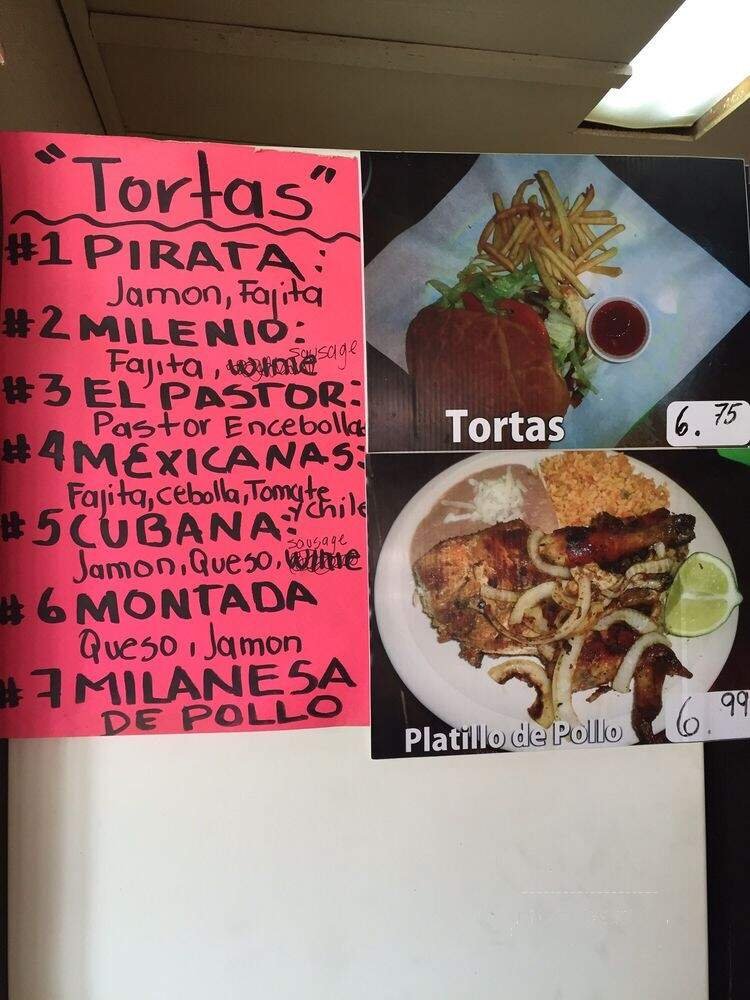 "Tortas"
#1 PIRATA:
Jamon, Fajita
#2 MILENIO:
Fajita, sausage
#3 EL PASTOR:
Pastor Encebolla
#4 MEXICANAS:
Fajita, cebolla, Tomate
y chile
#5 CUBANA:
Jamon, Queso, sausage
#6 MONTADA
Queso, Jamon
#7 MILANESA
DE POLLO
Tortas
6.75
Platillo de Pollo
6.99